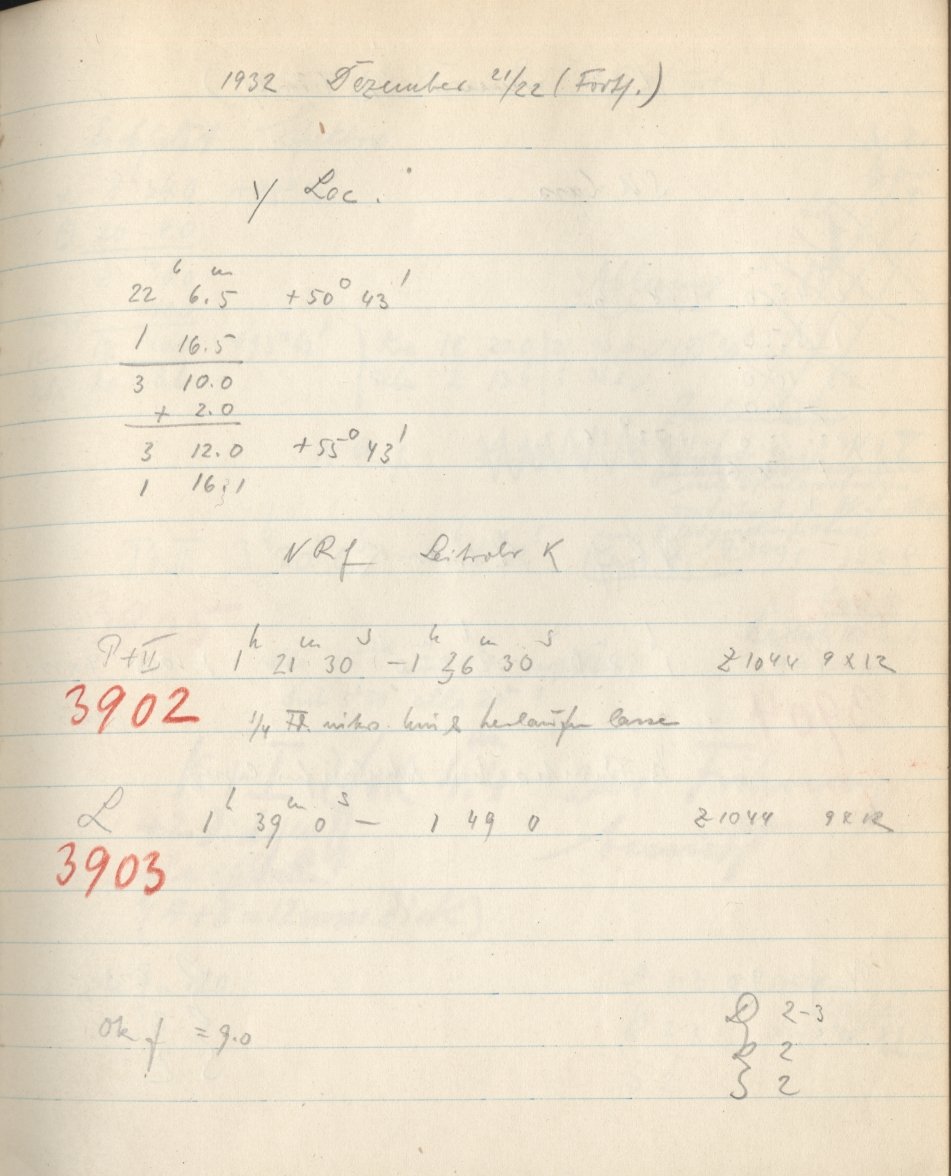 1932 Dezember 21/22 (Forts.)
Loc.
22 h 6.5 m +50° 43'
1 16.5
3 10.0
+ 2.0
3 12.0 +55° 43'
1 16.1
NRf Leitrohr K
P+II 1 h 21 m 30 s – 1 h 36 m 30 s Z1044 9x12
3902
1/4 mikr. lassen
L 1 h 39 m 0 s – 1 49 0 Z1044 9x12
3903
Ok f = 9.0
D 2-3
R 2
S 2